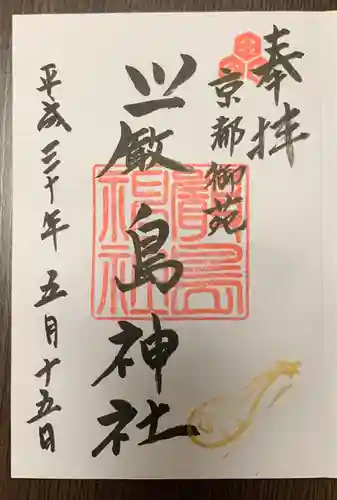 奉拝
京都御苑
厳島神社
平成三十年五月十五日
嚴島神社